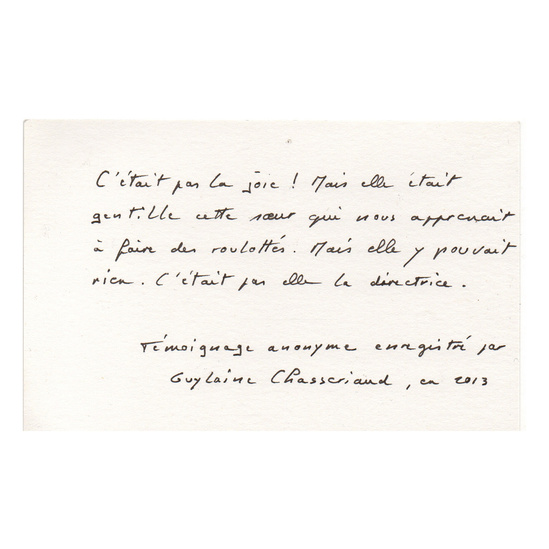 C'était pas la joie ! Mais elle était
gentille cette sœur qui nous apprenait
à faire des roulottés. Mais elle y pouvait
rien. C'était pas elle la directrice.
Témoignage anonyme enregistré par
Guylaine Chasseriaud, en 2013